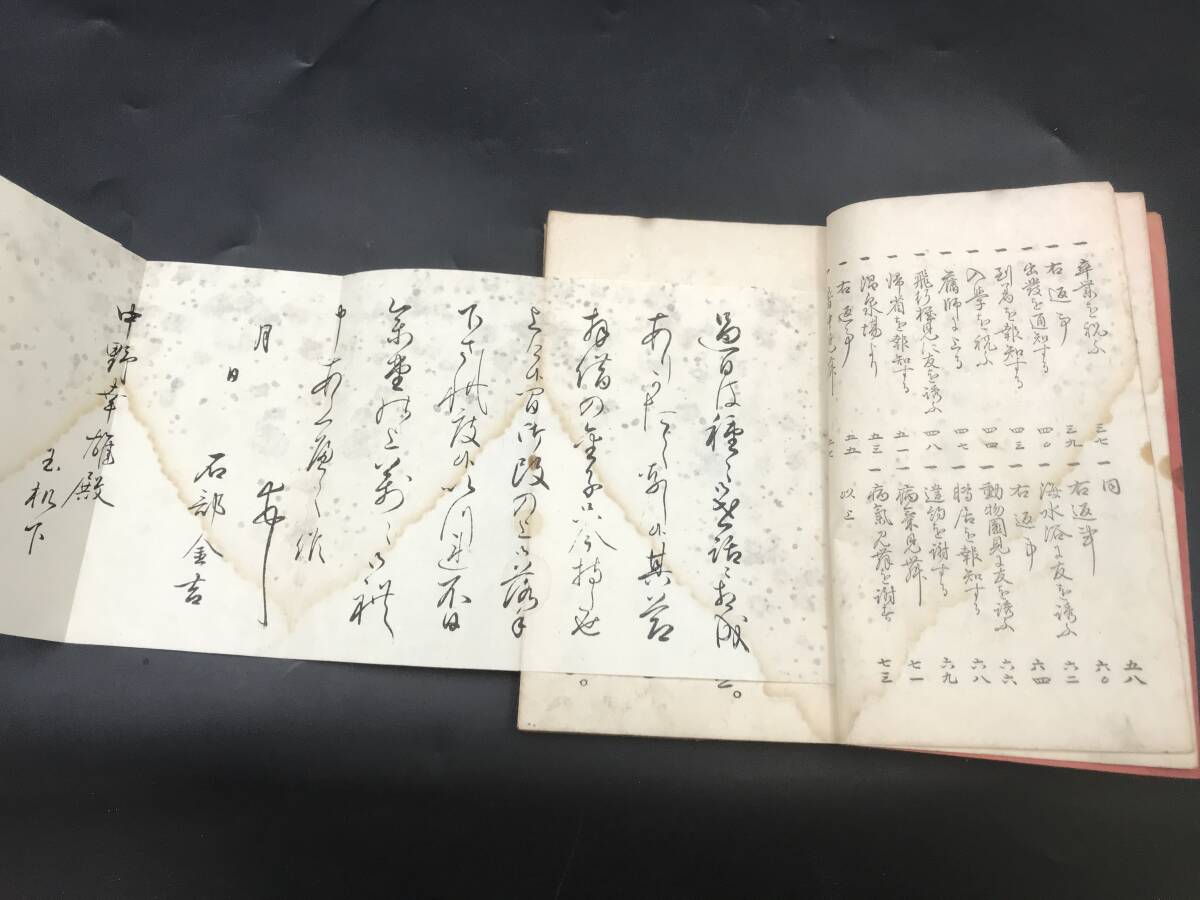 一 卒業を祝ふ 三七
一 右返事 三九
一 出發を通知する 四〇
一 到着を報知する 四三
一 入學を祝ふ 四四
一 舊師に上る 四七
一 飛行機見に友を誘ふ 四八
一 帰省を報知する 五一
一 温泉場より 五三
一 右返事 五五
一 同 五八
一 右返事 六〇
一 海水浴に友を誘ふ 六二
一 右返事 六四
一 動物園見に友を誘ふ 六六
一 轉居を報知する 六八
一 違約を謝する 六九
一 病氣見舞 七一
一 病氣見舞を謝す 七三
以上
過日は種々御世話に相成
ありがたく奉存候其節
拝借の金子只今持せ
上候間御段の上御落手
下され度候以上不日
参堂の上萬々御禮
申あぐべく候
月 日
石部金吉
中野幸雄殿
玉机下